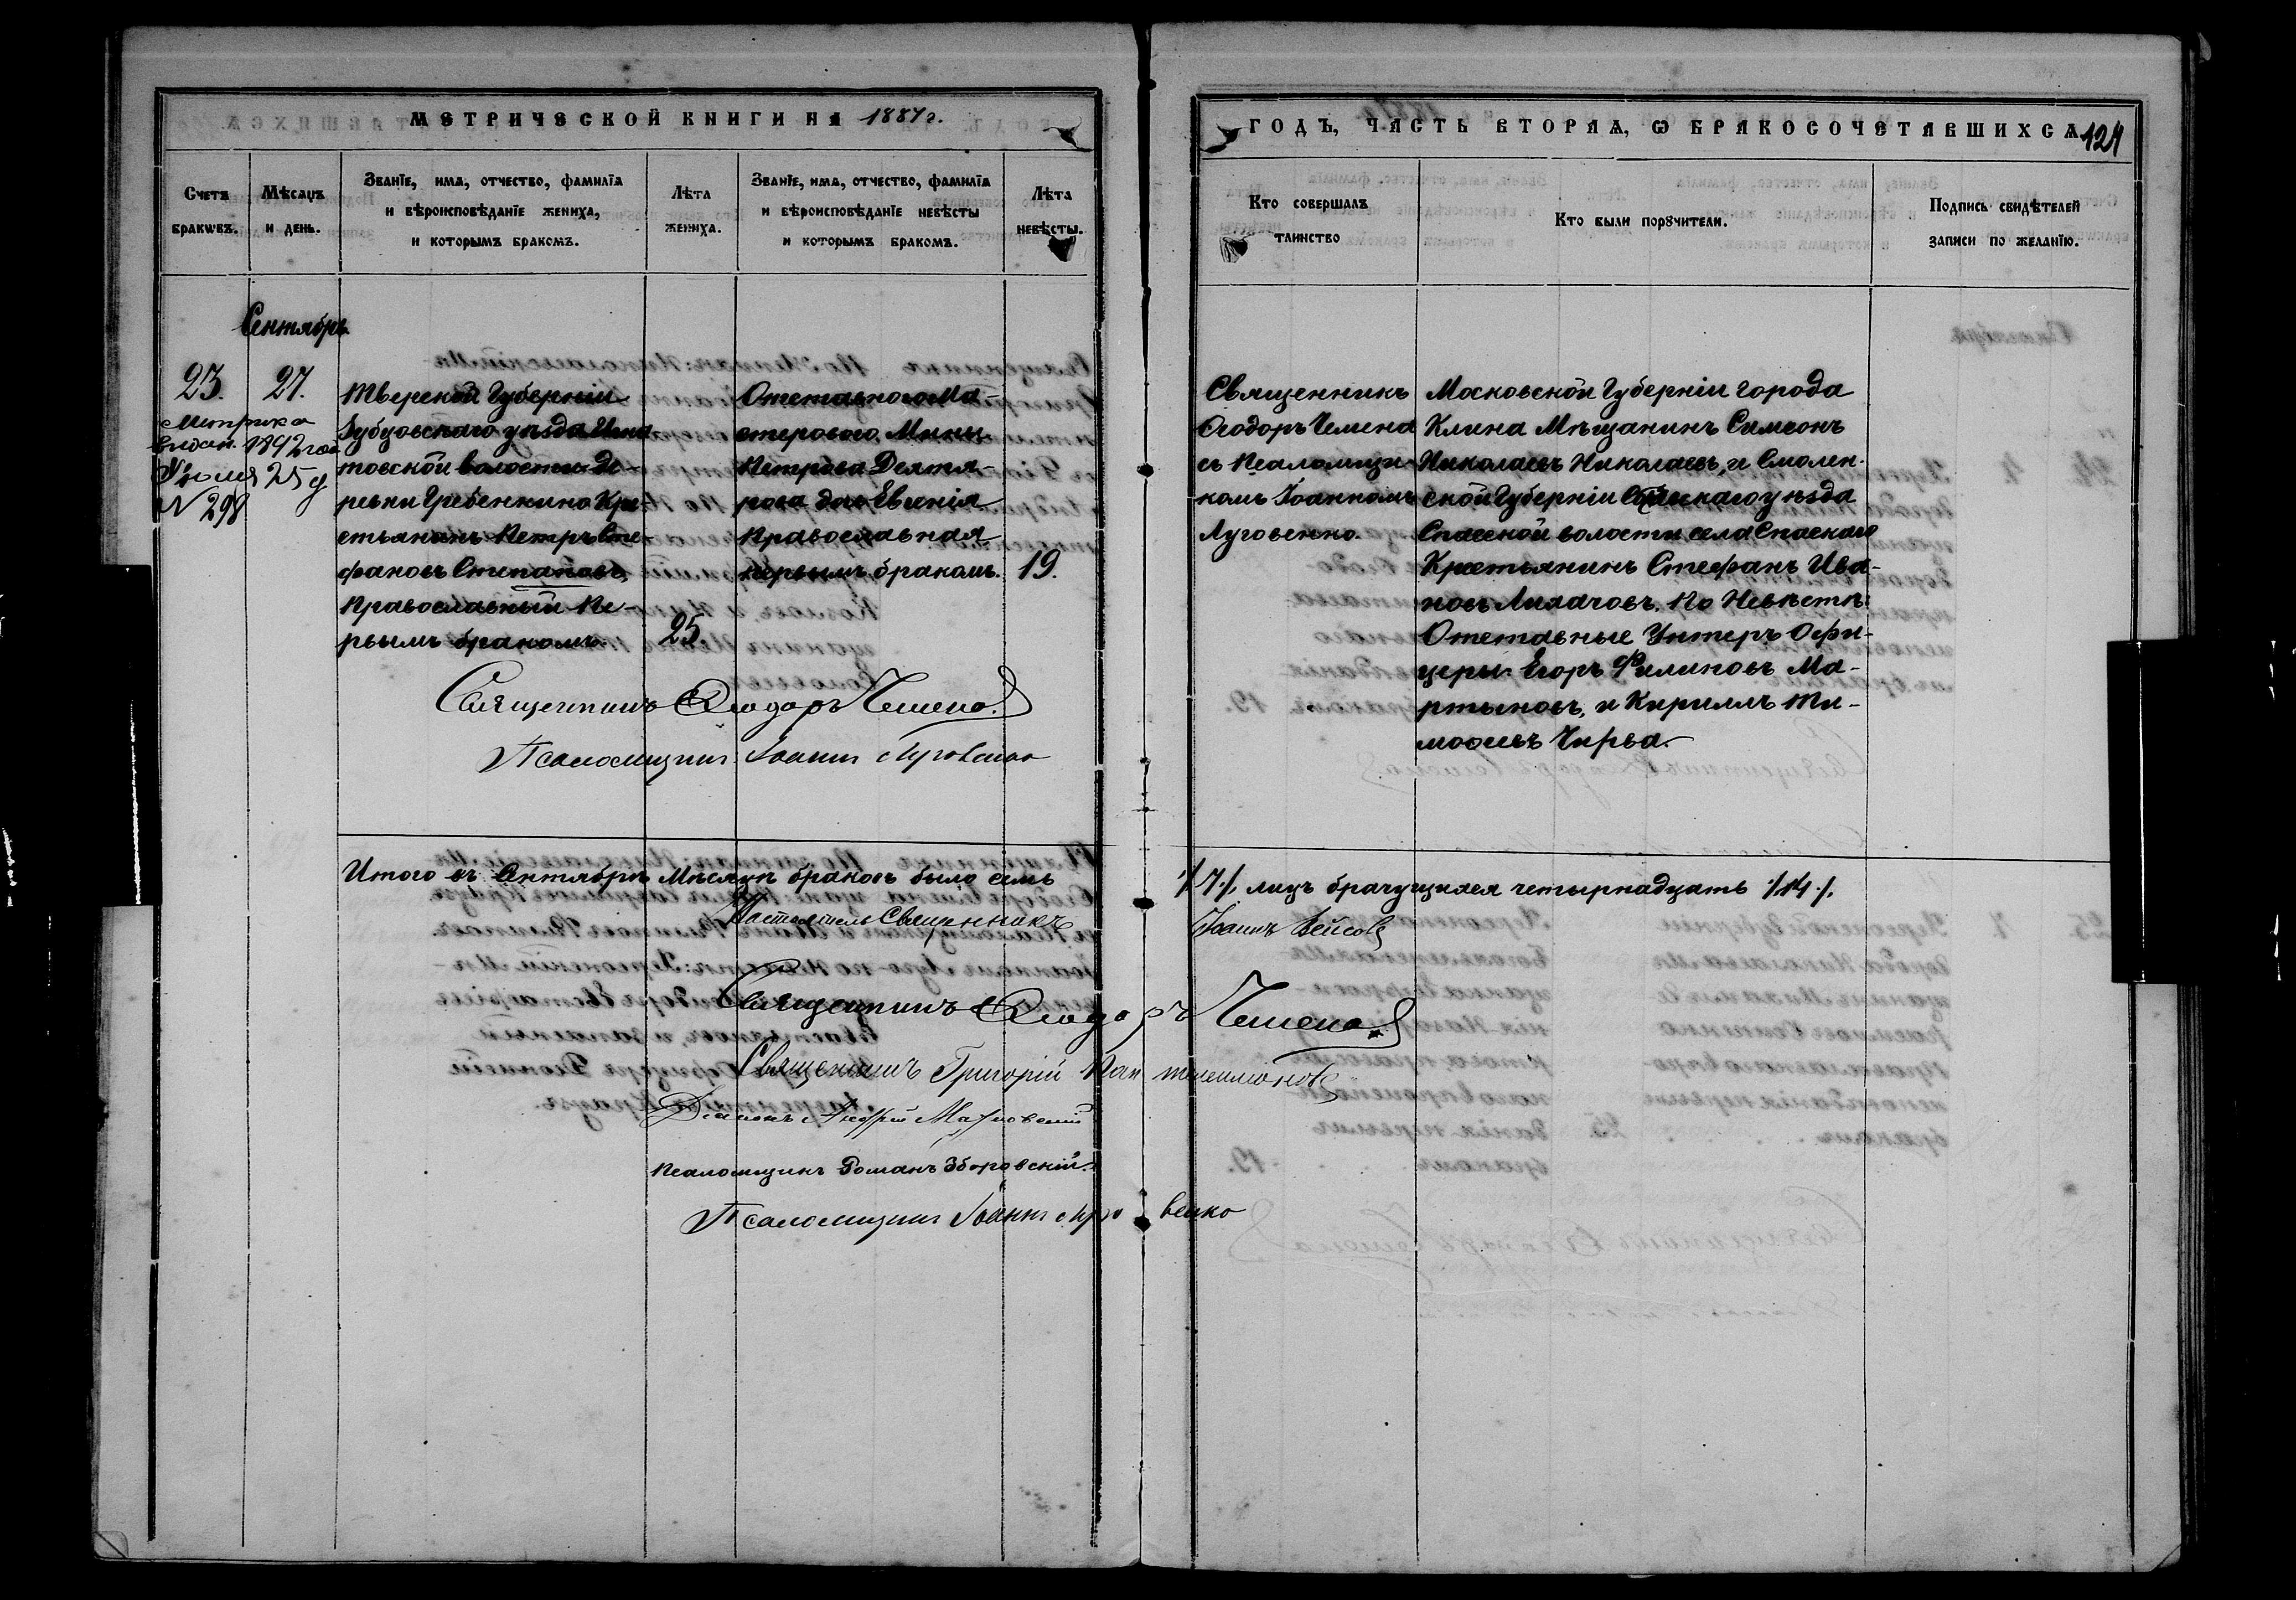 МЕТРИЧЕСКОЙ КНИГИ НА 1887 г.
ГОДЪ, ЧАСТЬ ВТОРАѦ, Ѡ БРАКОСОЧЕТАВШИХСѦ 124
Счетъ браковъ.
Мѣсѧцъ и день.
Званїе, имѧ, отчество, фамилїѧ
и вѣроисповѣданїе жениха,
и которымъ бракомъ.
Лѣта жениха.
Званїе, имѧ, отчество, фамилїѧ
и вѣроисповѣданїе невѣсты
и которымъ бракомъ.
Лѣта невѣсты.
Кто совершалъ
таинство
Кто были порꙋчители.
Подпись свидѣтелей
записи по желанїю.
Сентябрь
23.
27.
Метрика
выдан. 1892 года
Іюля 25 д
N 298
Тверской Губерніи
Зубцовскаго уѣзда
товской волости де-
ревни Гребенкино Кре-
стьянинъ Петръ Сте-
фановъ Степановъ,
Православный пе-
рвымъ бракомъ.
25.
Отставного Ма-
стерового Мины
Петрова Дегтя-
рова дочь Евгенія
Православная
первымъ бракомъ.
19.
Священникъ Ѳеодоръ Чемена.
Псаломщикъ Іоаннъ Луговенко
Священникъ
Ѳеодоръ Чемена
съ Псаломщи-
комъ Іоанномъ
Луговенко.
Московской Губерніи города
Клина Мѣщанинъ Симеонъ
Николаевъ Николаевъ, и Смолен-
ской Губерніи уѣзда
Спасской волости села Спаскаго
Крестьянинъ Стефанъ Ива-
новъ Лихачовъ. По Невѣстѣ:
Отставные Унтеръ Офи-
церы: Егоръ Филиповъ Ма-
ртыновъ, и Кириллъ Ти-
моѳеевъ Чирва.
Итого въ Сентябрѣ Мѣсяцѣ браковъ было семь ./7./. лицъ брачущихся четырнадцать ./.14./.
Настоятель Священникъ Іоаннъ
Священникъ Ѳеодоръ Чемена
Священникъ Григорій Пантелеимоновъ
Діаконъ Андрей
Псаломщикъ Романъ Зборовскій.
Псаломщикъ Іоаннъ Луговенко